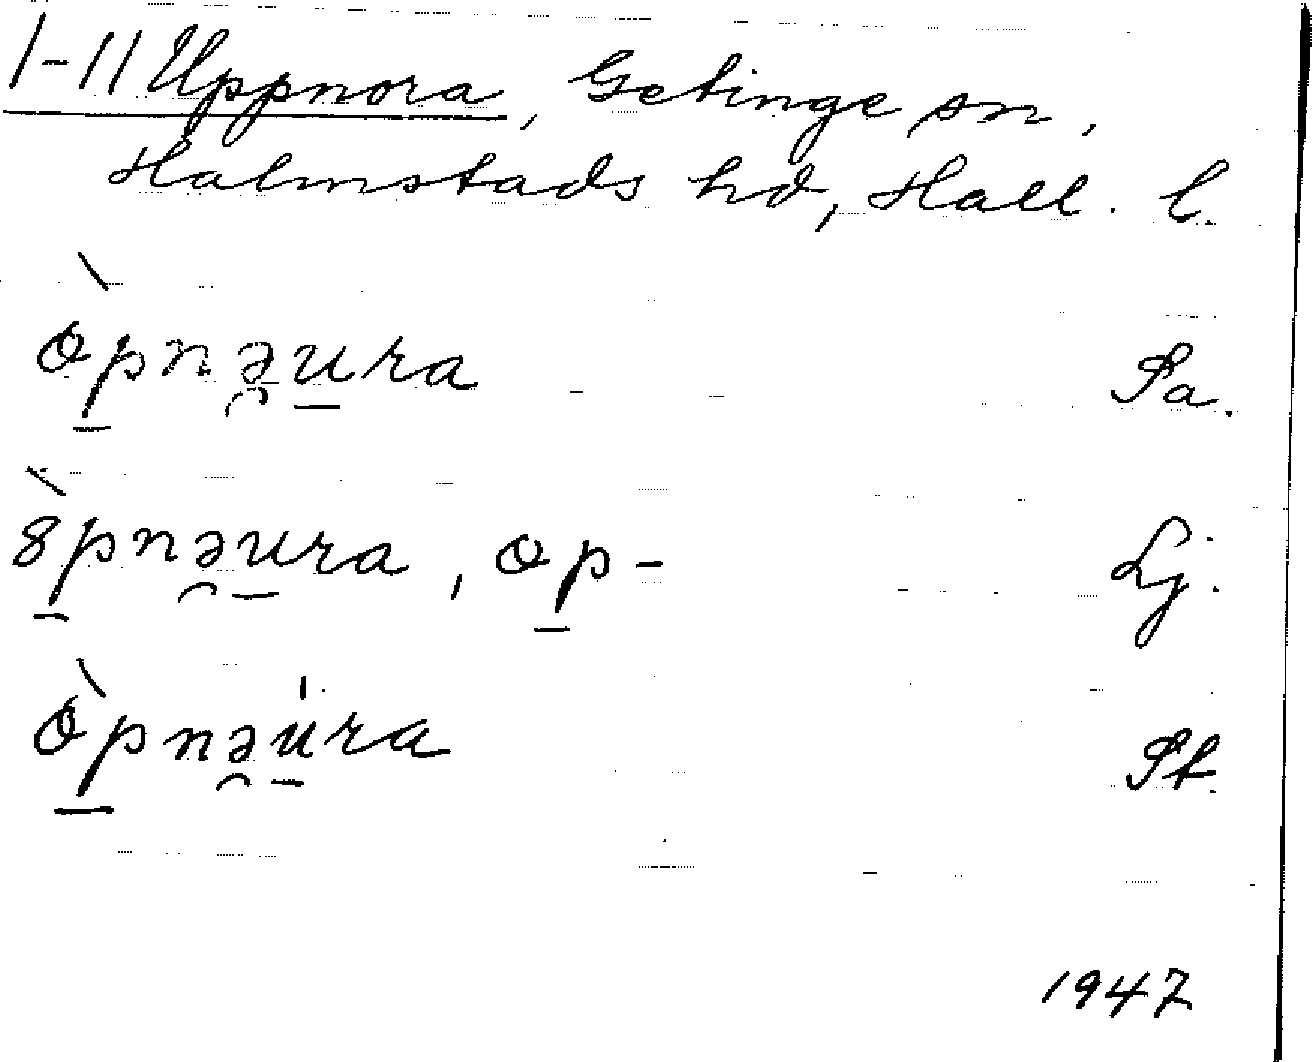 1-11 Uppnora, Getinge sn,
Halmstads hd, Hall. l.
òpnəura Sa.
8̀pnəura, op- Lj.
òpnəu̍ra St.
1947